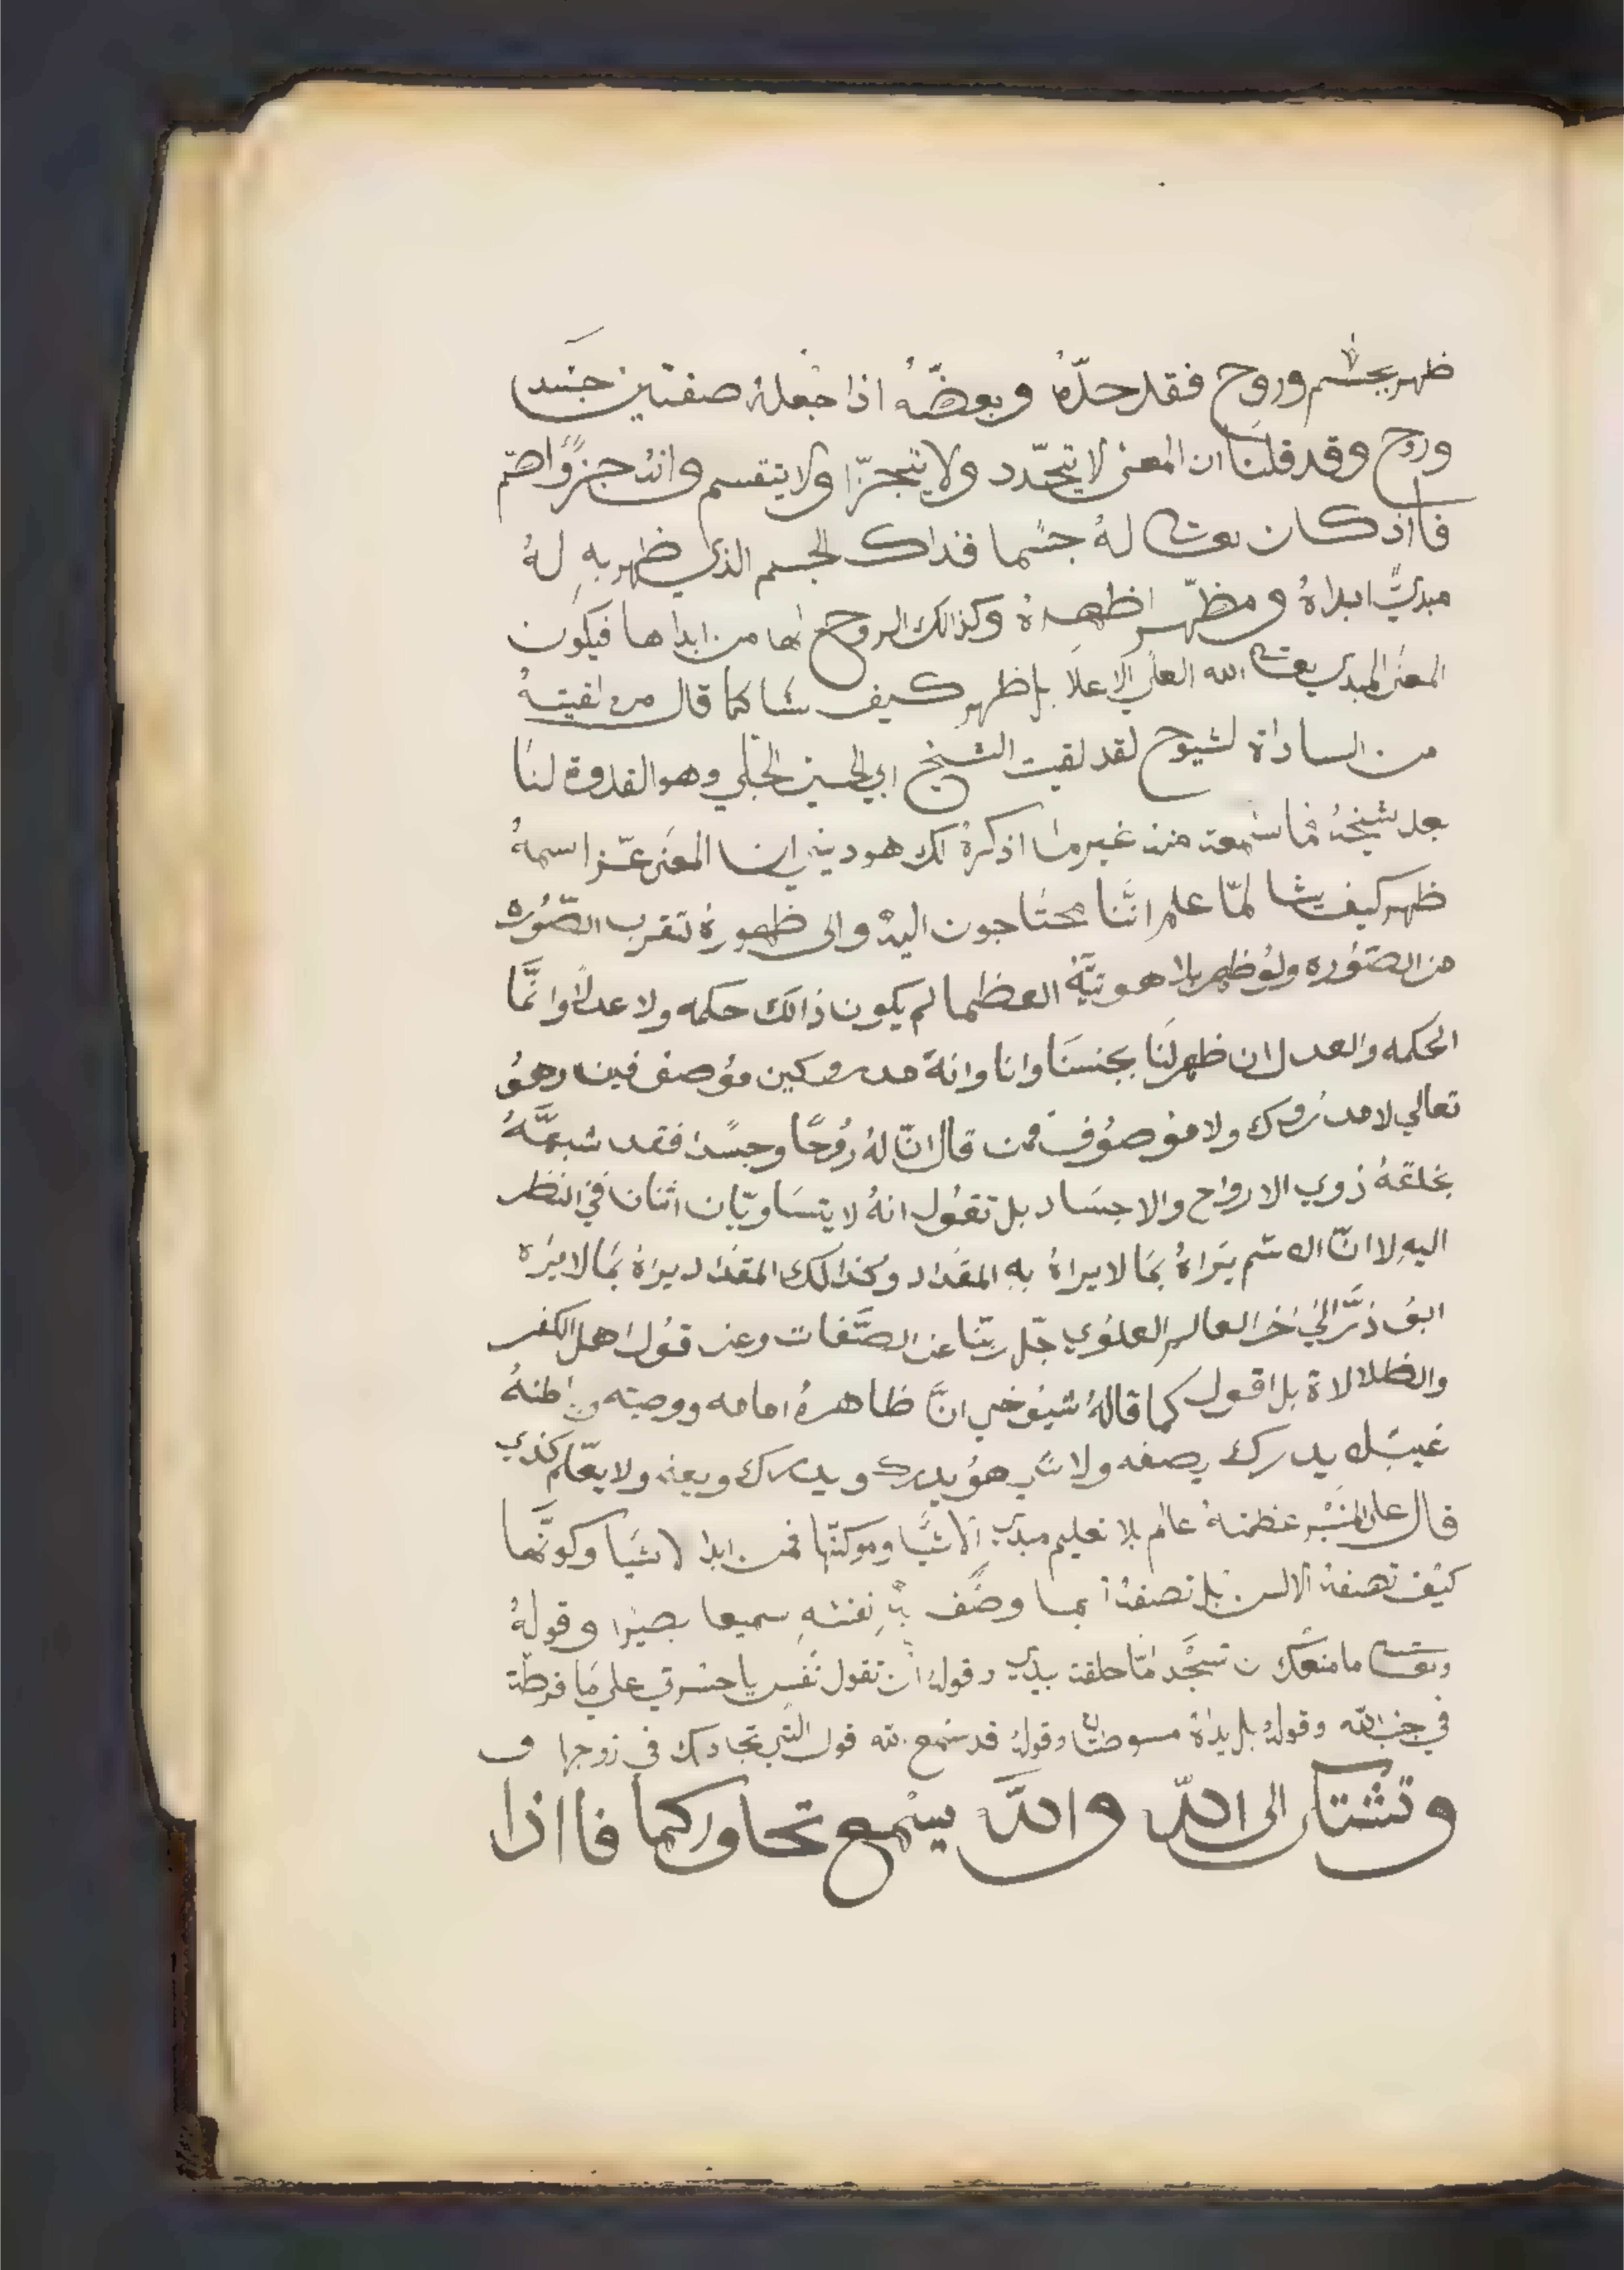 ظهر بجسم وروح فقد حدّهُ وبعضّهُ اذا جعلهُ صفتين جسد
وروح وقد قلنا ان المعنى لا يتحّدد ولا يتجزّا ولا يتقسم وانهُ جزوًا
فااذ كان له جسما فذاك الجسم الذي ظهر بهِ لهُ
مبديًّ ابداهُ ومظهّر اظهرهُ وكذالك الروح لها من ابداها فيكون
المعنى المبدي الله العلي الاعلا بل ظهر كيف شا كما قال من لقيتهُ
من الساداة لشيوخ لقد لقيت الشيخ ابي الحسين الجلي وهو القدوة لنا
بعد شيخهُ فما سمعت منه غير ما اذكرهُ لك هو ديني ان المعنى عزّ اسمهُ
ظهر كيف يشا لمّا علم انّنا محتاجون اليهْ والى ظهورهُ تقرب الصّوُره
من الصوُره ولوُ ظهر بلاهوتيّهُ العظما لم يكون ذالك حكمه ولا عدلاً وانّما
الحكمه والعدل ان ظهر لنا بجنسنا وانا وانهُ مدروكين موُصفوفين وهوُ
تعالي لا مدرُوك ولا موصوُف فمن قال انّ لهُ روُحًا وجسدًا فقد شبههُ
بخلقهُ ذوي الارواح والاجساد بل تقوُل انهُ لا يتساويّان اثنان في النظر
اليهِ لا انّ الاسم يراهُ بما لا يراهُ به المقداد وكذالك المقداد يراهُ بما لا يرهُ
ابوُ ذرّ الى اخر العالم العلوُي جلّ ربّنا عن الصّفات وعن قوُل اهل الكفر
والظلالاة بل اقول كما قالهُ شيوُخي انّ ظاهرهُ امامه ووصيته وباطنهُ
غيب يدرك بصفه ولا شي هوُ يدرك ويدرك ولا يعلّم كذي
قال على المنبر عظمتهُ عالم بلا تعليم مبدي الاشيًا وموكنّها فمن ابدا لاشيا وكونّها
كيف تصفهُ الالسن بل تصفهُ بما وصّف بهْ نفسهِ سميعا بصيرا وقولهُ
ما منعك ن تسجّد لمّا خلقت بيدي وقولهُ ان تقول نفس يا حسرتي على ما فرطت
في جنب الله وقولهُ بل يداهُ مبسوطتان وقولهُ قد سمع لله قول التّي تجادلك في زوجها و
وتشتاكى الى اللّه واللّه يسمع تحاوركما فااذا